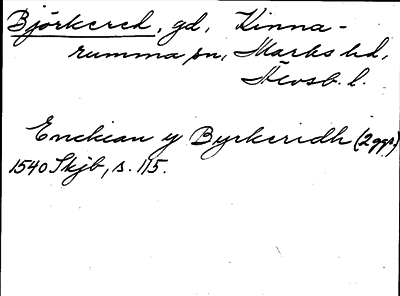 Björkered, gd, Kinna-
rumma sn, Marks hd,
Älvsb. l.
Enckian y Byrkeridh (2 ggr)
1540 Skjb, s. 115.